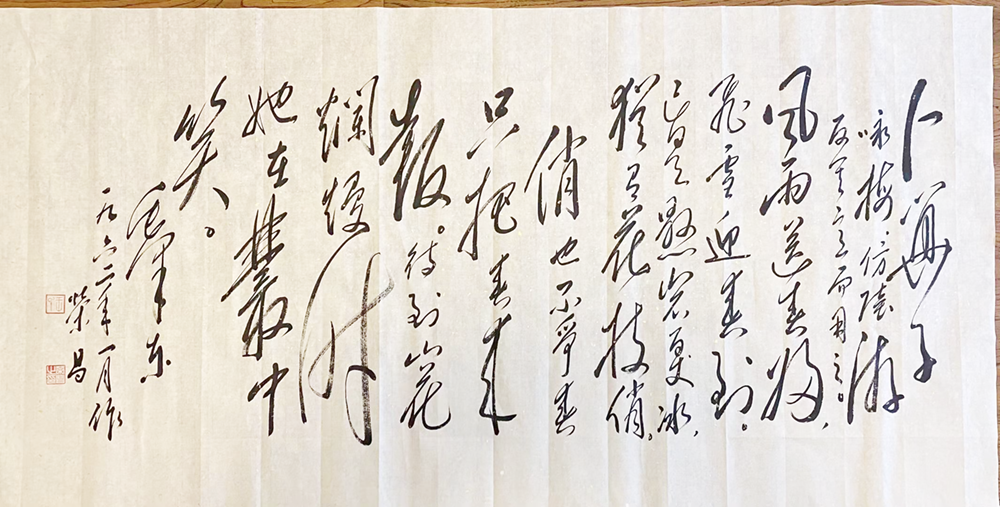 卜算子
咏梅、仿陆游
反其意而用之。
风雨送春归，
飞雪迎春到。
已是懸岩百丈冰，
猶有花枝俏。
俏也不爭春
只把春来
報。待到山花
爛熳时
她在叢中
笑。
毛泽东
一九六二年一月作
榮昌